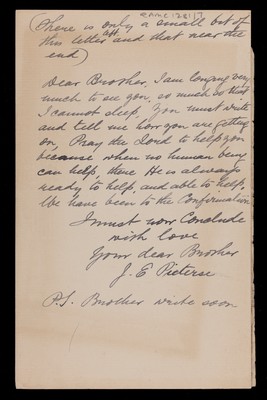 (There is only a small bit of
this letter left and that near the
end)
Dear Brosher, I am longing very
much to see you, so much so that
I cannot sleep, you must write
and tell me how you are getting
on, Pray the Lord to help you
because when no human being
can help, there He is always
ready to help, and able to help,
We have been to the Confirmation
I must now Conclude
with love
Your dear Brosher
J. E Pieterse
P.S. Brother write soon